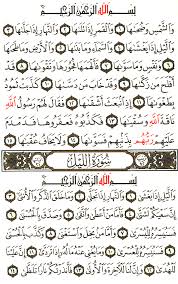 بِسْمِ ٱللَّهِ ٱلرَّحْمَٰنِ ٱلرَّحِيمِ
وَٱلشَّمْسِ وَضُحَىٰهَا ١ وَٱلْقَمَرِ إِذَا تَلَىٰهَا ٢ وَٱلنَّهَارِ إِذَا جَلَّىٰهَا ٣
وَٱلَّيْلِ إِذَا يَغْشَىٰهَا ٤ وَٱلسَّمَآءِ وَمَا بَنَىٰهَا ٥ وَٱلْأَرْضِ وَمَا طَحَىٰهَا ٦
وَنَفْسٍ وَمَا سَوَّىٰهَا ٧ فَأَلْهَمَهَا فُجُورَهَا وَتَقْوَىٰهَا ٨ قَدْ
أَفْلَحَ مَن زَكَّىٰهَا ٩ وَقَدْ خَابَ مَن دَسَّىٰهَا ١٠ كَذَّبَتْ ثَمُودُ
بِطَغْوَىٰهَآ ١١ إِذِ ٱنۢبَعَثَ أَشْقَىٰهَا ١٢ فَقَالَ لَهُمْ رَسُولُ ٱللَّهِ
نَاقَةَ ٱللَّهِ وَسُقْيَٰهَا ١٣ فَكَذَّبُوهُ فَعَقَرُوهَا فَدَمْدَمَ
عَلَيْهِمْ رَبُّهُم بِذَنۢبِهِمْ فَسَوَّىٰهَا ١٤ وَلَا يَخَافُ عُقْبَٰهَا ١٥
سُورَةُ ٱللَّيْلِ
بِسْمِ ٱللَّهِ ٱلرَّحْمَٰنِ ٱلرَّحِيمِ
وَٱلَّيْلِ إِذَا يَغْشَىٰ ١ وَٱلنَّهَارِ إِذَا تَجَلَّىٰ ٢ وَمَا خَلَقَ ٱلذَّكَرَ وَٱلْأُنثَىٰٓ ٣ إِنَّ
سَعْيَكُمْ لَشَتَّىٰ ٤ فَأَمَّا مَنْ أَعْطَىٰ وَٱتَّقَىٰ ٥ وَصَدَّقَ بِٱلْحُسْنَىٰ ٦
فَسَنُيَسِّرُهُۥ لِلْيُسْرَىٰ ٧ وَأَمَّا مَنۢ بَخِلَ وَٱسْتَغْنَىٰ ٨ وَكَذَّبَ بِٱلْحُسْنَىٰ ٩
فَسَنُيَسِّرُهُۥ لِلْعُسْرَىٰ ١٠ وَمَا يُغْنِى عَنْهُ مَالُهُۥٓ إِذَا تَرَدَّىٰٓ ١١ إِنَّ عَلَيْنَا
لَلْهُدَىٰ ١٢ وَإِنَّ لَنَا لَلْءَاخِرَةَ وَٱلْأُولَىٰ ١٣ فَأَنذَرْتُكُمْ نَارًا تَلَظَّىٰ ١٤